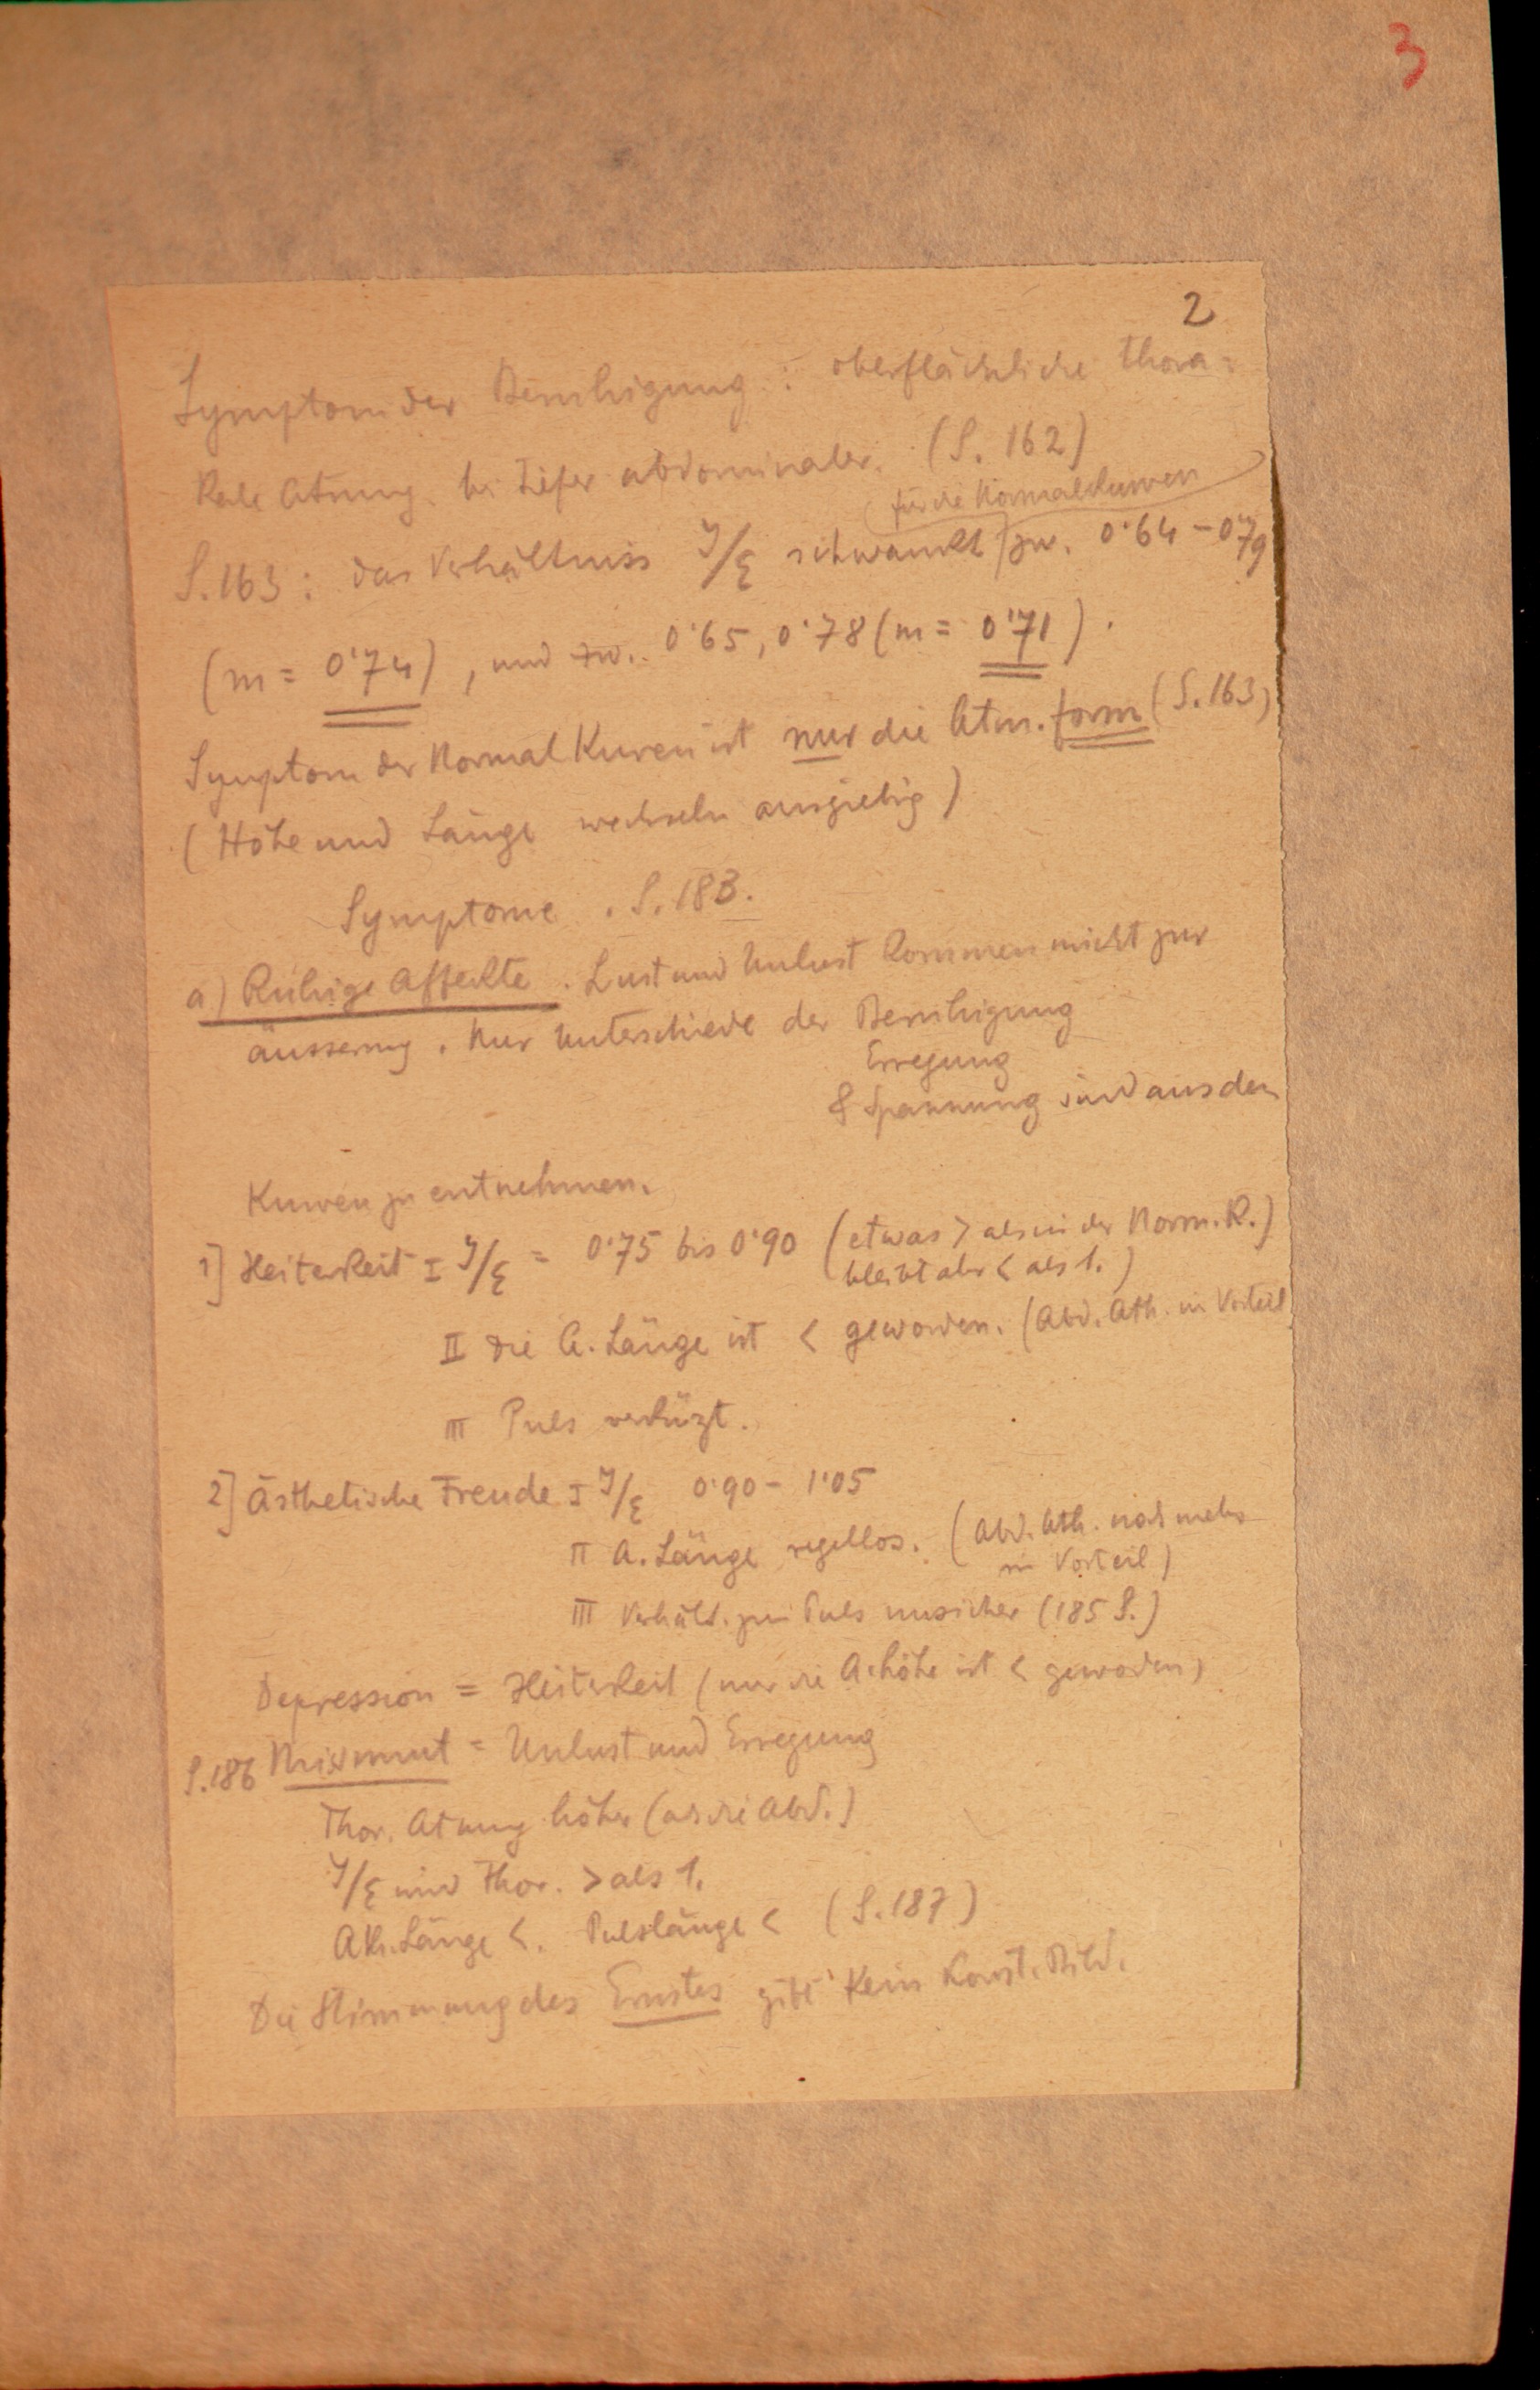 3
2
Symptom der Beruhigung : oberflächliche thora=
kale Atmung. bei tiefer abdominaler. (S. 162)
für die Normalkurven
S. 163 : das Verhältniss J/E schwankt zw. 0·64 – 0·79
(m = 0·74) , und zw. 0·65, 0·78 (m = 0·71) .
Symptom der Normal Kurven ist nur die Atm. form (S. 163)
( Höhe und Länge wechseln ausgiebig )
Symptome . S. 183.
a) Ruhige Affekte . Lust und Unlust kommen nicht zur
äusserung . Nur Unterschiede der Beruhigung
Erregung
& Spannung sind aus den
Kurven zu entnehmen.
1] Heiterkeit I J/E = 0·75 bis 0·90 (etwas > als in der Norm. K.)
bleibt aber < als 1. )
II die A. Länge ist < geworden. (Abd. Ath. im Vorteil
III Puls verkürzt .
2] Ästhetische Freude I J/E 0·90 – 1·05
II A. Länge regellos. (Abd. Ath. noch mehr
im Vorteil)
III Verhält. zum Puls unsicher (185 S.)
Depression = Heiterkeit (nur die A. höhe ist < geworden)
S. 186 Missmut = Unlust und Erregung
Thor. Atmung höher (als die Abd.)
J/E wird Thor. > als 1.
Ath. Länge <. Pulslänge < (S. 187)
Die Stimmung des Ernstes gibt kein Konst. Bild.